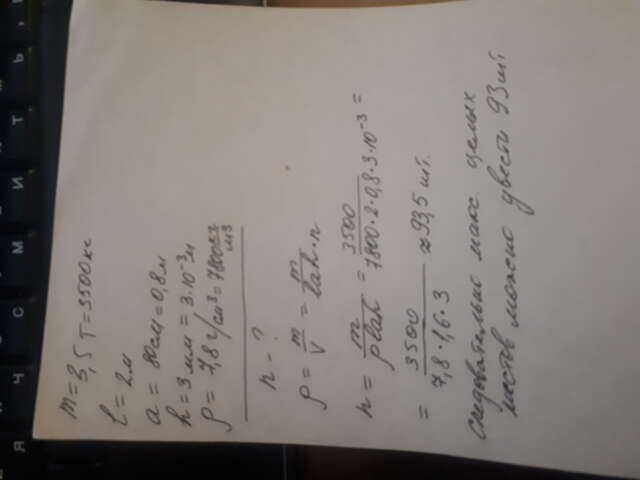 m=3,5 т=3500кг
l = 2м
a = 80см=0,8м
h=3мм=3·10⁻³м
ρ = 7,8г/см³=7800 кг/м³
n - ?
ρ = m/V = m/lah·n
n = m/ρlah = 3500/7800·2·0,8·3·10⁻³ =
= 3500/7,8·1,6·3 ≈93,5 шт.
следовательно макс. целых
листов можно увести 93шт